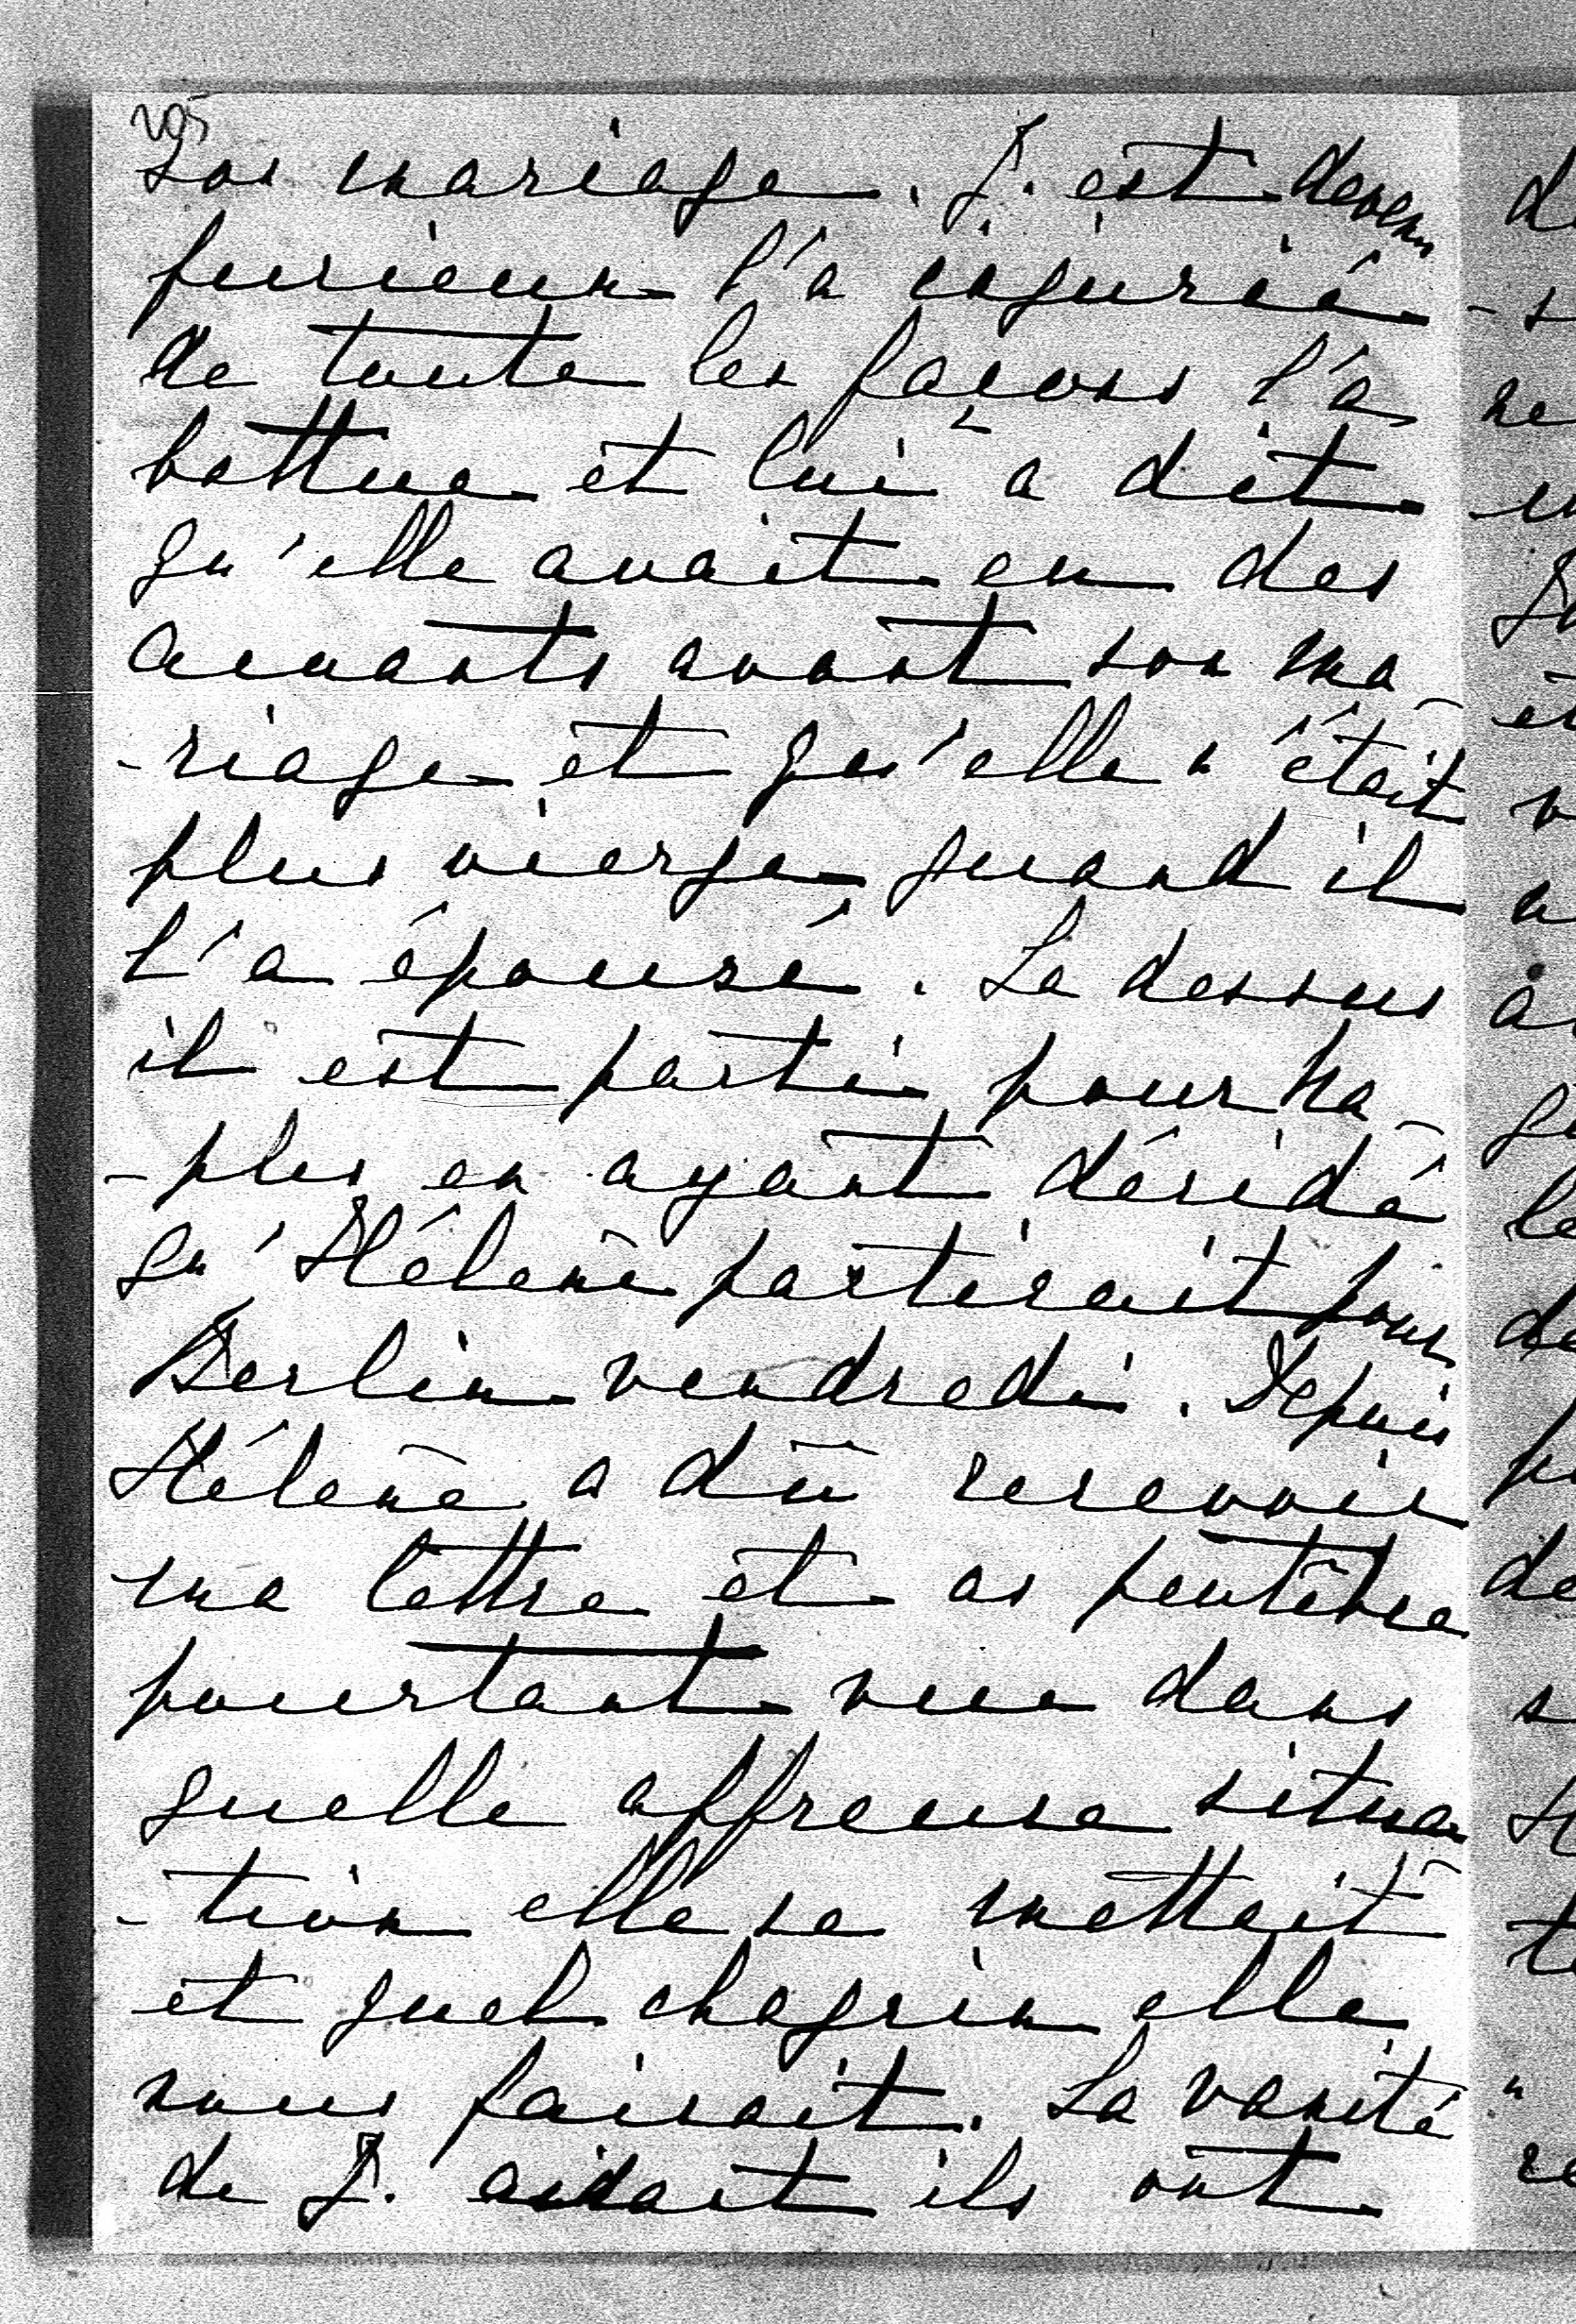 205
son mariage. J. est devenu
furieux l'a injurié
de toute les façons l'a
battue et lui a dit
qu'elle avait eu des
amants avant son ma-
-riage et qu'elle n'était
plus vierge quand il
l'a épousé. La dessus
il est parti pour Na-
-ples en ayant décidé
qu'Hélène partirait pour
Berlin vendredi. Depuis
Hélène a dû recevoir
ma lettre et as peutêtre
pourtant vue dans
quelle affreuse situa-
-tion elle se mettait
et quel chagrin elle
nous faisait. La vanité
de J. aidait ils ont